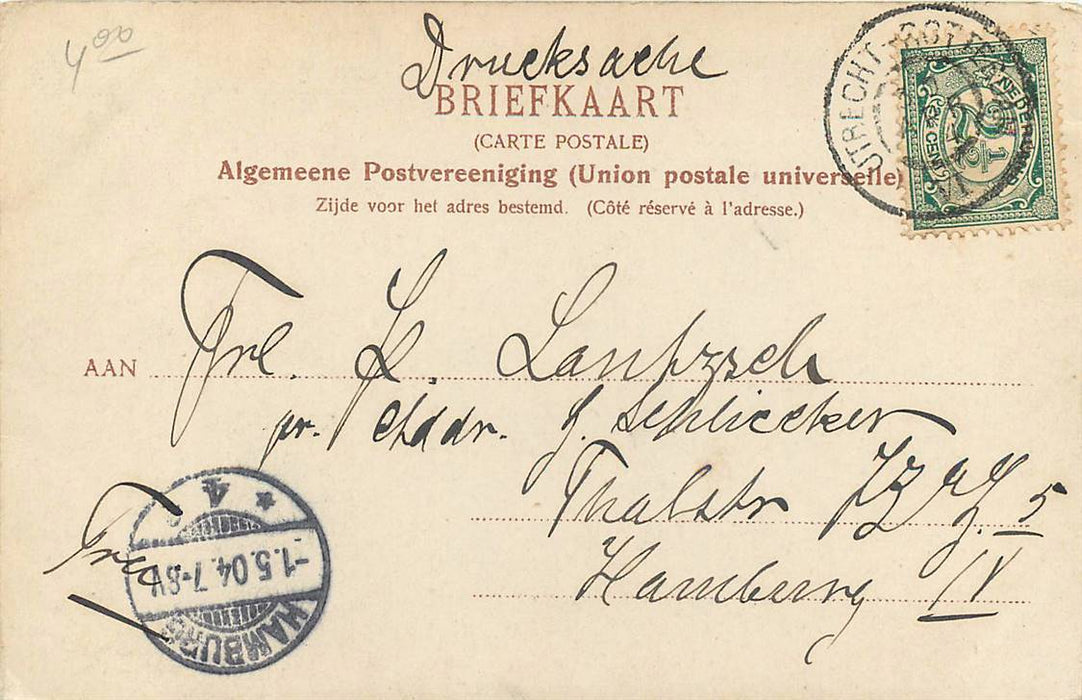 4.00
Drucksache
BRIEFKAART
(CARTE POSTALE)
Algemeene Postvereeniging (Union postale universelle)
Zijde voor het adres bestemd. (Côté réservé à l'adresse.)
UTRECHT-ROTTERDAM
NEDERLAND
2½
AAN Frl. L. Lantzsch
pr. Addr. J. Schliecker
Thalstr
5
Hamburg IV
4
-1.5.04.7-8V.
HAMBURG